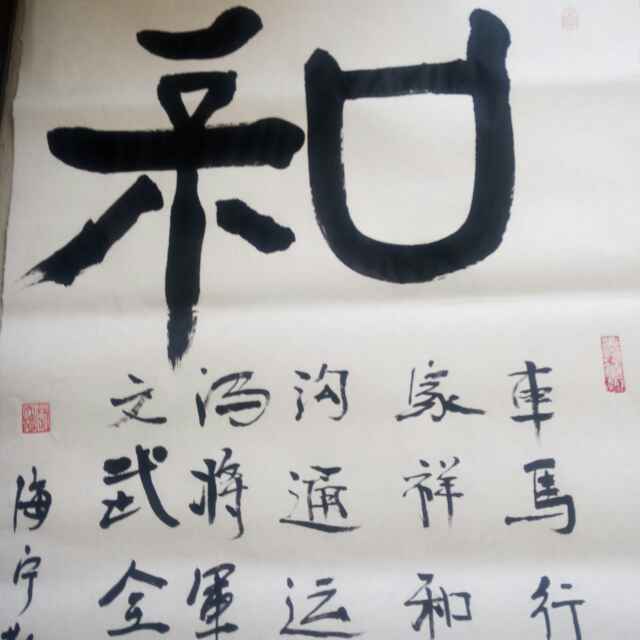 和
車馬行
家祥和
沟通运
冯将軍
文武全
海宁